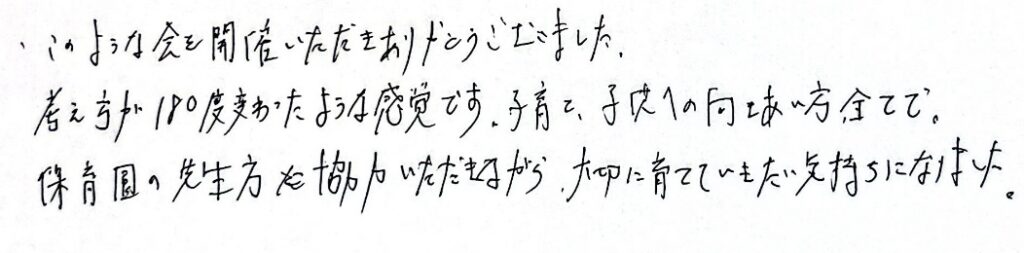 ・このような会を開催いただきありがとうございました。
考え方が180度変わったような感覚です。子育て、子供への向きあい方全てで。
保育園の先生方に協力いただきながら、大切に育てていきたい気持ちになりました。